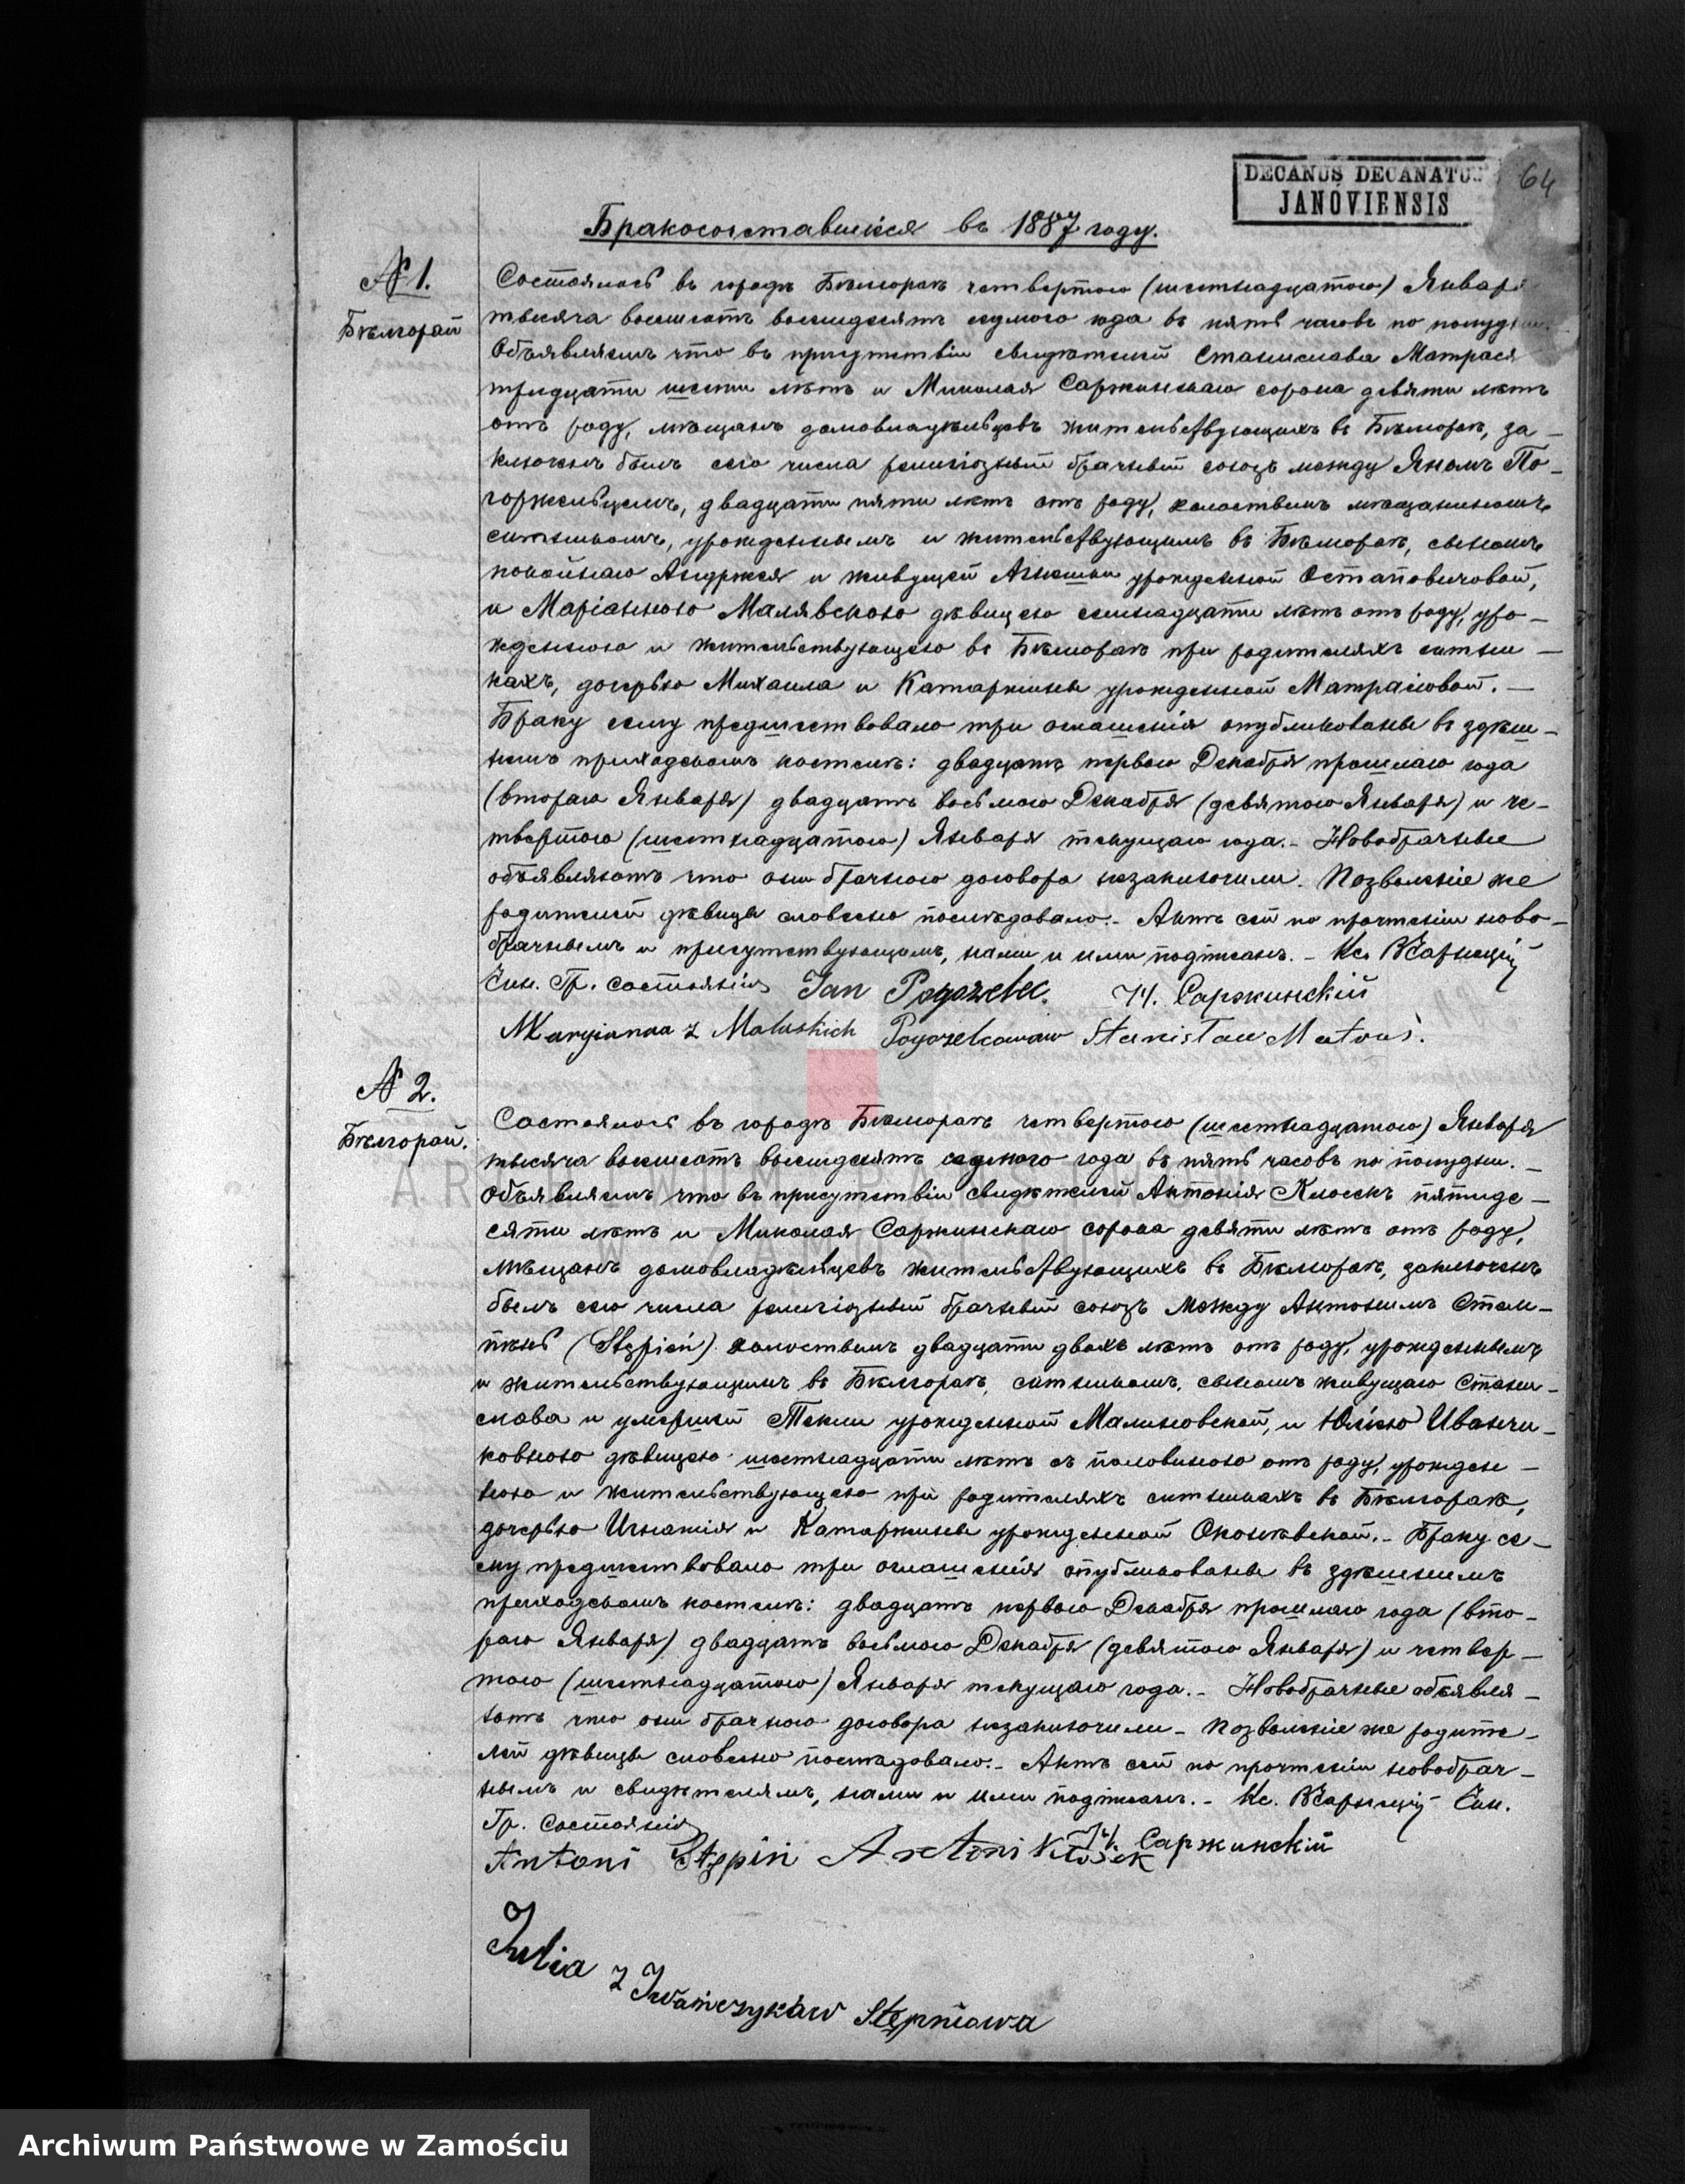 DECANUS DECANATUS
JANOVIENSIS
64
Бракосочетавшіеся въ 1887 году.
№ 1.
Бѣлгорай
Состоялось въ городѣ Бѣлгораѣ четвертого (шестнадцатого) Января
тысяча восемсотъ восемдесятъ седмого года въ пять часовъ по полудни.
Объявляемъ что въ присутствіи свидѣтелей Станислава Матрася
тридцати шести лѣтъ и Миколая Саржинскаго сорока девяти лѣтъ
отъ роду, мѣщанъ домовладѣльцевъ жительствующихъ въ Бѣлгораѣ, за-
ключенъ былъ сего числа религіозный брачный союзъ между Яномъ По-
горжельцемъ, двадцати пяти лѣтъ отъ роду, холостымъ мѣщаниномъ
ситникомъ, урожденнымъ и жительствующимъ въ Бѣлгораѣ, сыномъ
покойнаго Андржея и живущей Агнешки урожденной Остаповичовой,
и Маріанною Малявскою дѣвицею семнадцати лѣтъ отъ роду, уро-
жденною и жительствующею въ Бѣлгораѣ при родителяхъ ситни-
кахъ, дочерью Михаила и Катаржины урожденной Матрасіовой. —
Браку сему предшествовало три оглашенія опубликованы въ здѣш-
немъ приходскомъ костелѣ: двадцать первого Декабря прошлаго года
(второго Января) двадцать восьмого Декабря (девятого Января) и че-
твертого (шестнадцатого) Января текущаго года.- Новобрачные
объявляютъ что они брачного договора незаключили. Позволеніе же
родителей дѣвицы словесно послѣдовало.- Актъ сей по прочтеніи ново-
брачнымъ и присутствующимъ, нами и ими подписанъ.- Кс.
Чин. Гр. состоянія Jan Pogorzelec. Н. Саржинскій
Maryianna z Malaskich Pogorzelcowaw Stanisław Matraś.
№ 2.
Бѣлгорай.
Состоялось въ городѣ Бѣлгораѣ четвертого (шестнадцатого) Января
тысяча восемсотъ восемдесятъ седмого года въ пять часовъ по полудни. -
Объявляемъ что въ присутствіи свидѣтелей Антонія Клосекъ пятиде-
сяти лѣтъ и Миколая Саржинскаго сорока девяти лѣтъ отъ роду,
мѣщанъ домовладѣльцевъ жительствующихъ въ Бѣлгораѣ, заключенъ
былъ сего числа религіозный брачный союзъ между Антонимъ Стем-
пѣнь (Stępień) холостымъ двадцати двохъ лѣтъ отъ роду, урожденнымъ
и жительствующимъ въ Бѣлгораѣ, ситникомъ, сыномъ живущаго Стани-
слава и умершей Текли урожденной Малиновской, и Юліею Иванчи-
ковною дѣвицею шестнадцати лѣтъ съ половиною отъ роду, урожден-
ною и жительствующею при родителяхъ ситникахъ въ Бѣлгораѣ,
дочерью Игнатія и Катаржины урожденной Оконѣвской.- Браку се-
му предшествовало три оглашенія опубликованы въ здѣшнемъ
приходскомъ костелѣ: двадцать первого Декабря прошлаго года (вто-
рого Января) двадцать восьмого Декабря (девятого Января) и четвер-
того (шестнадцатого) Января текущаго года.- Новобрачные объявля-
ютъ что они брачного договора незаключили- Позволеніе же родите-
лей дѣвицы словесно послѣдовало.- Актъ сей по прочтеніи новобрач-
нымъ и свидѣтелямъ, нами и ими подписанъ.- Кс. Чин.
Гр. Состоянія
Antoni Stępin Antoni Kłosek Н. Саржинскій
Julia z Iwańczyków Stępniowa
ARCHIWUM PAŃSTWOWE
W ZAMOŚCIU
Archiwum Państwowe w Zamościu